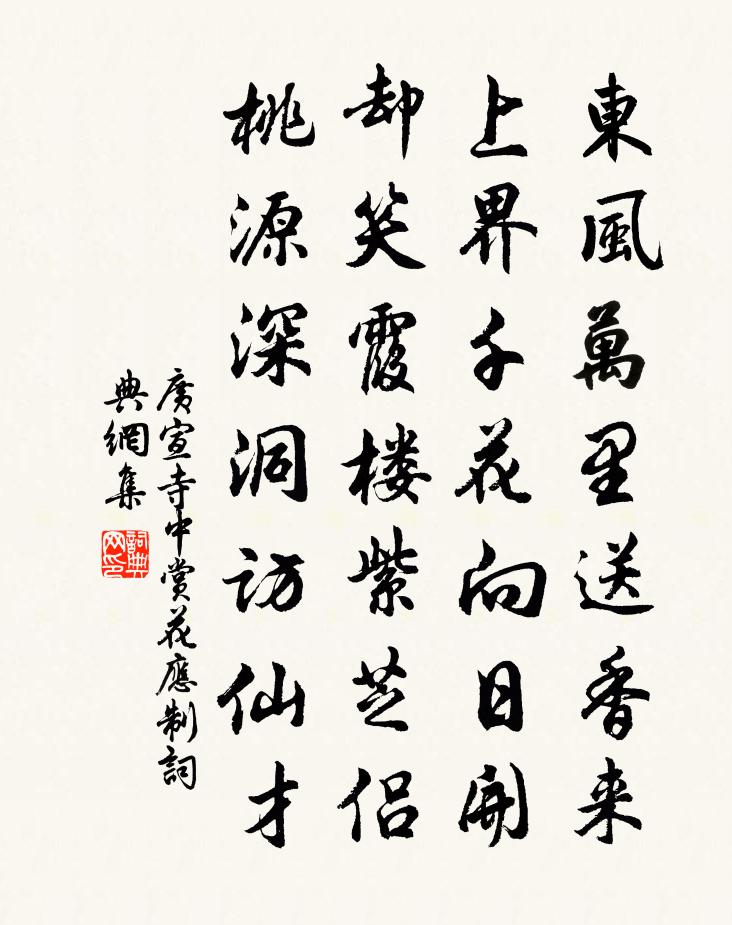 東風萬里送香来
上界千花向日開
却笑霞楼紫芝侣
桃源深洞訪仙才
廣宣寺中賞花應制詞
典網集
詞典网印